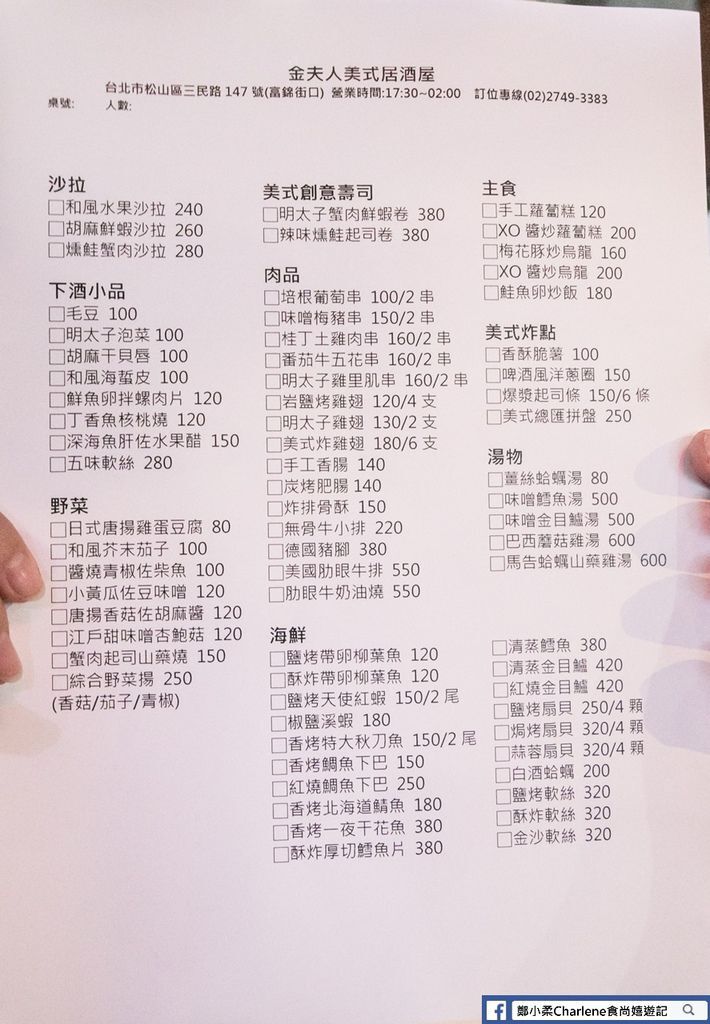 金夫人美式居酒屋
台北市松山區三民路 147 號(富錦街口) 營業時間:17:30~02:00 訂位專線(02)2749-3383
桌號: 人數:
沙拉
□和風水果沙拉 240
□胡麻鮮蝦沙拉 260
□燻鮭蟹肉沙拉 280
下酒小品
□毛豆 100
□明太子泡菜 100
□胡麻干貝唇 100
□和風海蜇皮 100
□鮮魚卵拌螺肉片 120
□丁香魚核桃燒 120
□深海魚肝佐水果醋 150
□五味軟絲 280
野菜
□日式唐揚雞蛋豆腐 80
□和風芥末茄子 100
□醬燒青椒佐柴魚 100
□小黃瓜佐豆味噌 120
□唐揚香菇佐胡麻醬 120
□江戶甜味噌杏鮑菇 120
□蟹肉起司山藥燒 150
□綜合野菜揚 250
(香菇/茄子/青椒)
美式創意壽司
□明太子蟹肉鮮蝦卷 380
□辣味燻鮭起司卷 380
肉品
□培根葡萄串 100/2 串
□味噌梅豬串 150/2 串
□桂丁土雞肉串 160/2 串
□番茄牛五花串 160/2 串
□明太子雞里肌串 160/2 串
□岩鹽烤雞翅 120/4 支
□明太子雞翅 130/2 支
□美式炸雞翅 180/6 支
□手工香腸 140
□炭烤肥腸 140
□炸排骨酥 150
□無骨牛小排 220
□德國豬腳 380
□美國肋眼牛排 550
□肋眼牛奶油燒 550
海鮮
□鹽烤帶卵柳葉魚 120
□酥炸帶卵柳葉魚 120
□鹽烤天使紅蝦 150/2 尾
□椒鹽溪蝦 180
□香烤特大秋刀魚 150/2 尾
□香烤鯛魚下巴 150
□紅燒鯛魚下巴 250
□香烤北海道鯖魚 180
□香烤一夜干花魚 380
□酥炸厚切鱈魚片 380
主食
□手工蘿蔔糕 120
□XO 醬炒蘿蔔糕 200
□梅花豚炒烏龍 160
□XO 醬炒烏龍 200
□鮭魚卵炒飯 180
美式炸點
□香酥脆薯 100
□啤酒風洋蔥圈 150
□爆漿起司條 150/6 條
□美式總匯拼盤 250
湯物
□薑絲蛤蠣湯 80
□味噌鱈魚湯 500
□味噌金目鱸湯 500
□巴西蘑菇雞湯 600
□馬告蛤蠣山藥雞湯 600
□清蒸鱈魚 380
□清蒸金目鱸 420
□紅燒金目鱸 420
□鹽烤扇貝 250/4 顆
□焗烤扇貝 320/4 顆
□蒜蓉扇貝 320/4 顆
□白酒蛤蠣 200
□鹽烤軟絲 320
□酥炸軟絲 320
□金沙軟絲 320
鄭小柔Charlene食尚嬉遊記